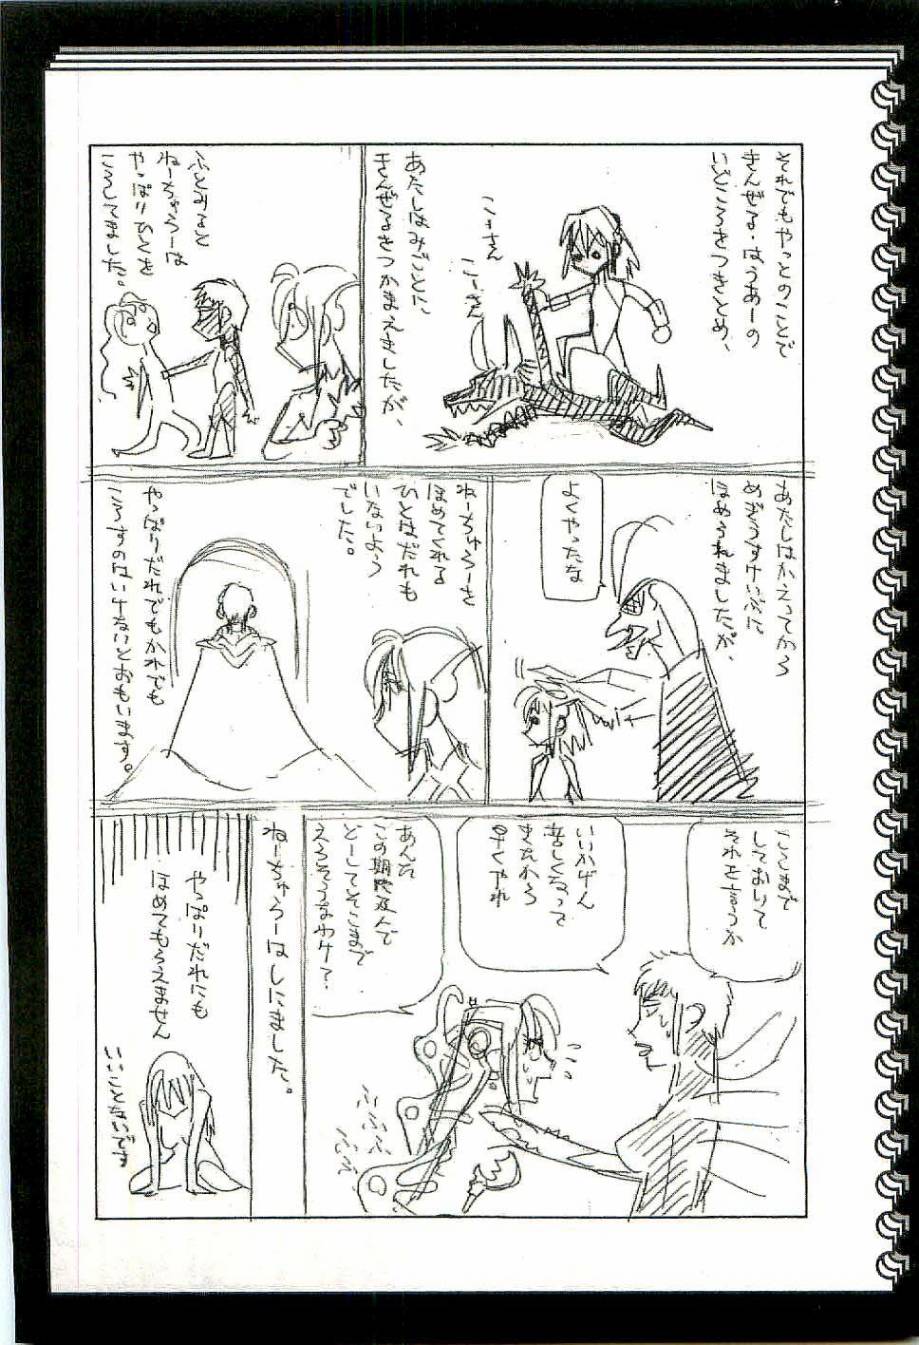 それでもやっとのことで
きんぜる・はうあーの
いどころをつきとめ、
こーさん
こーさん
あたしはみごとに
きんぜるをつかまえましたが、
ふとみると
ねーちゃらーは
やっぱりひとを
ころしてました。
あたしはかえってから
めぎうすけいぶに
ほめられましたが、
よくやったな
ねーちゃらーを
ほめてくれる
ひとはだれも
いないよう
でした。
やっぱりだれでもかれでも
ころすのはいけないとおもいます。
ここまで
しておいて
それを言うか
いいかげん
苦しくなって
きたから
早くやれ
あんた
この期に及んで
どーしてそこまで
えらそうなわけ？
ねーちゃらーはしにました。
やっぱりだれにも
ほめてもらえません
いいことないです